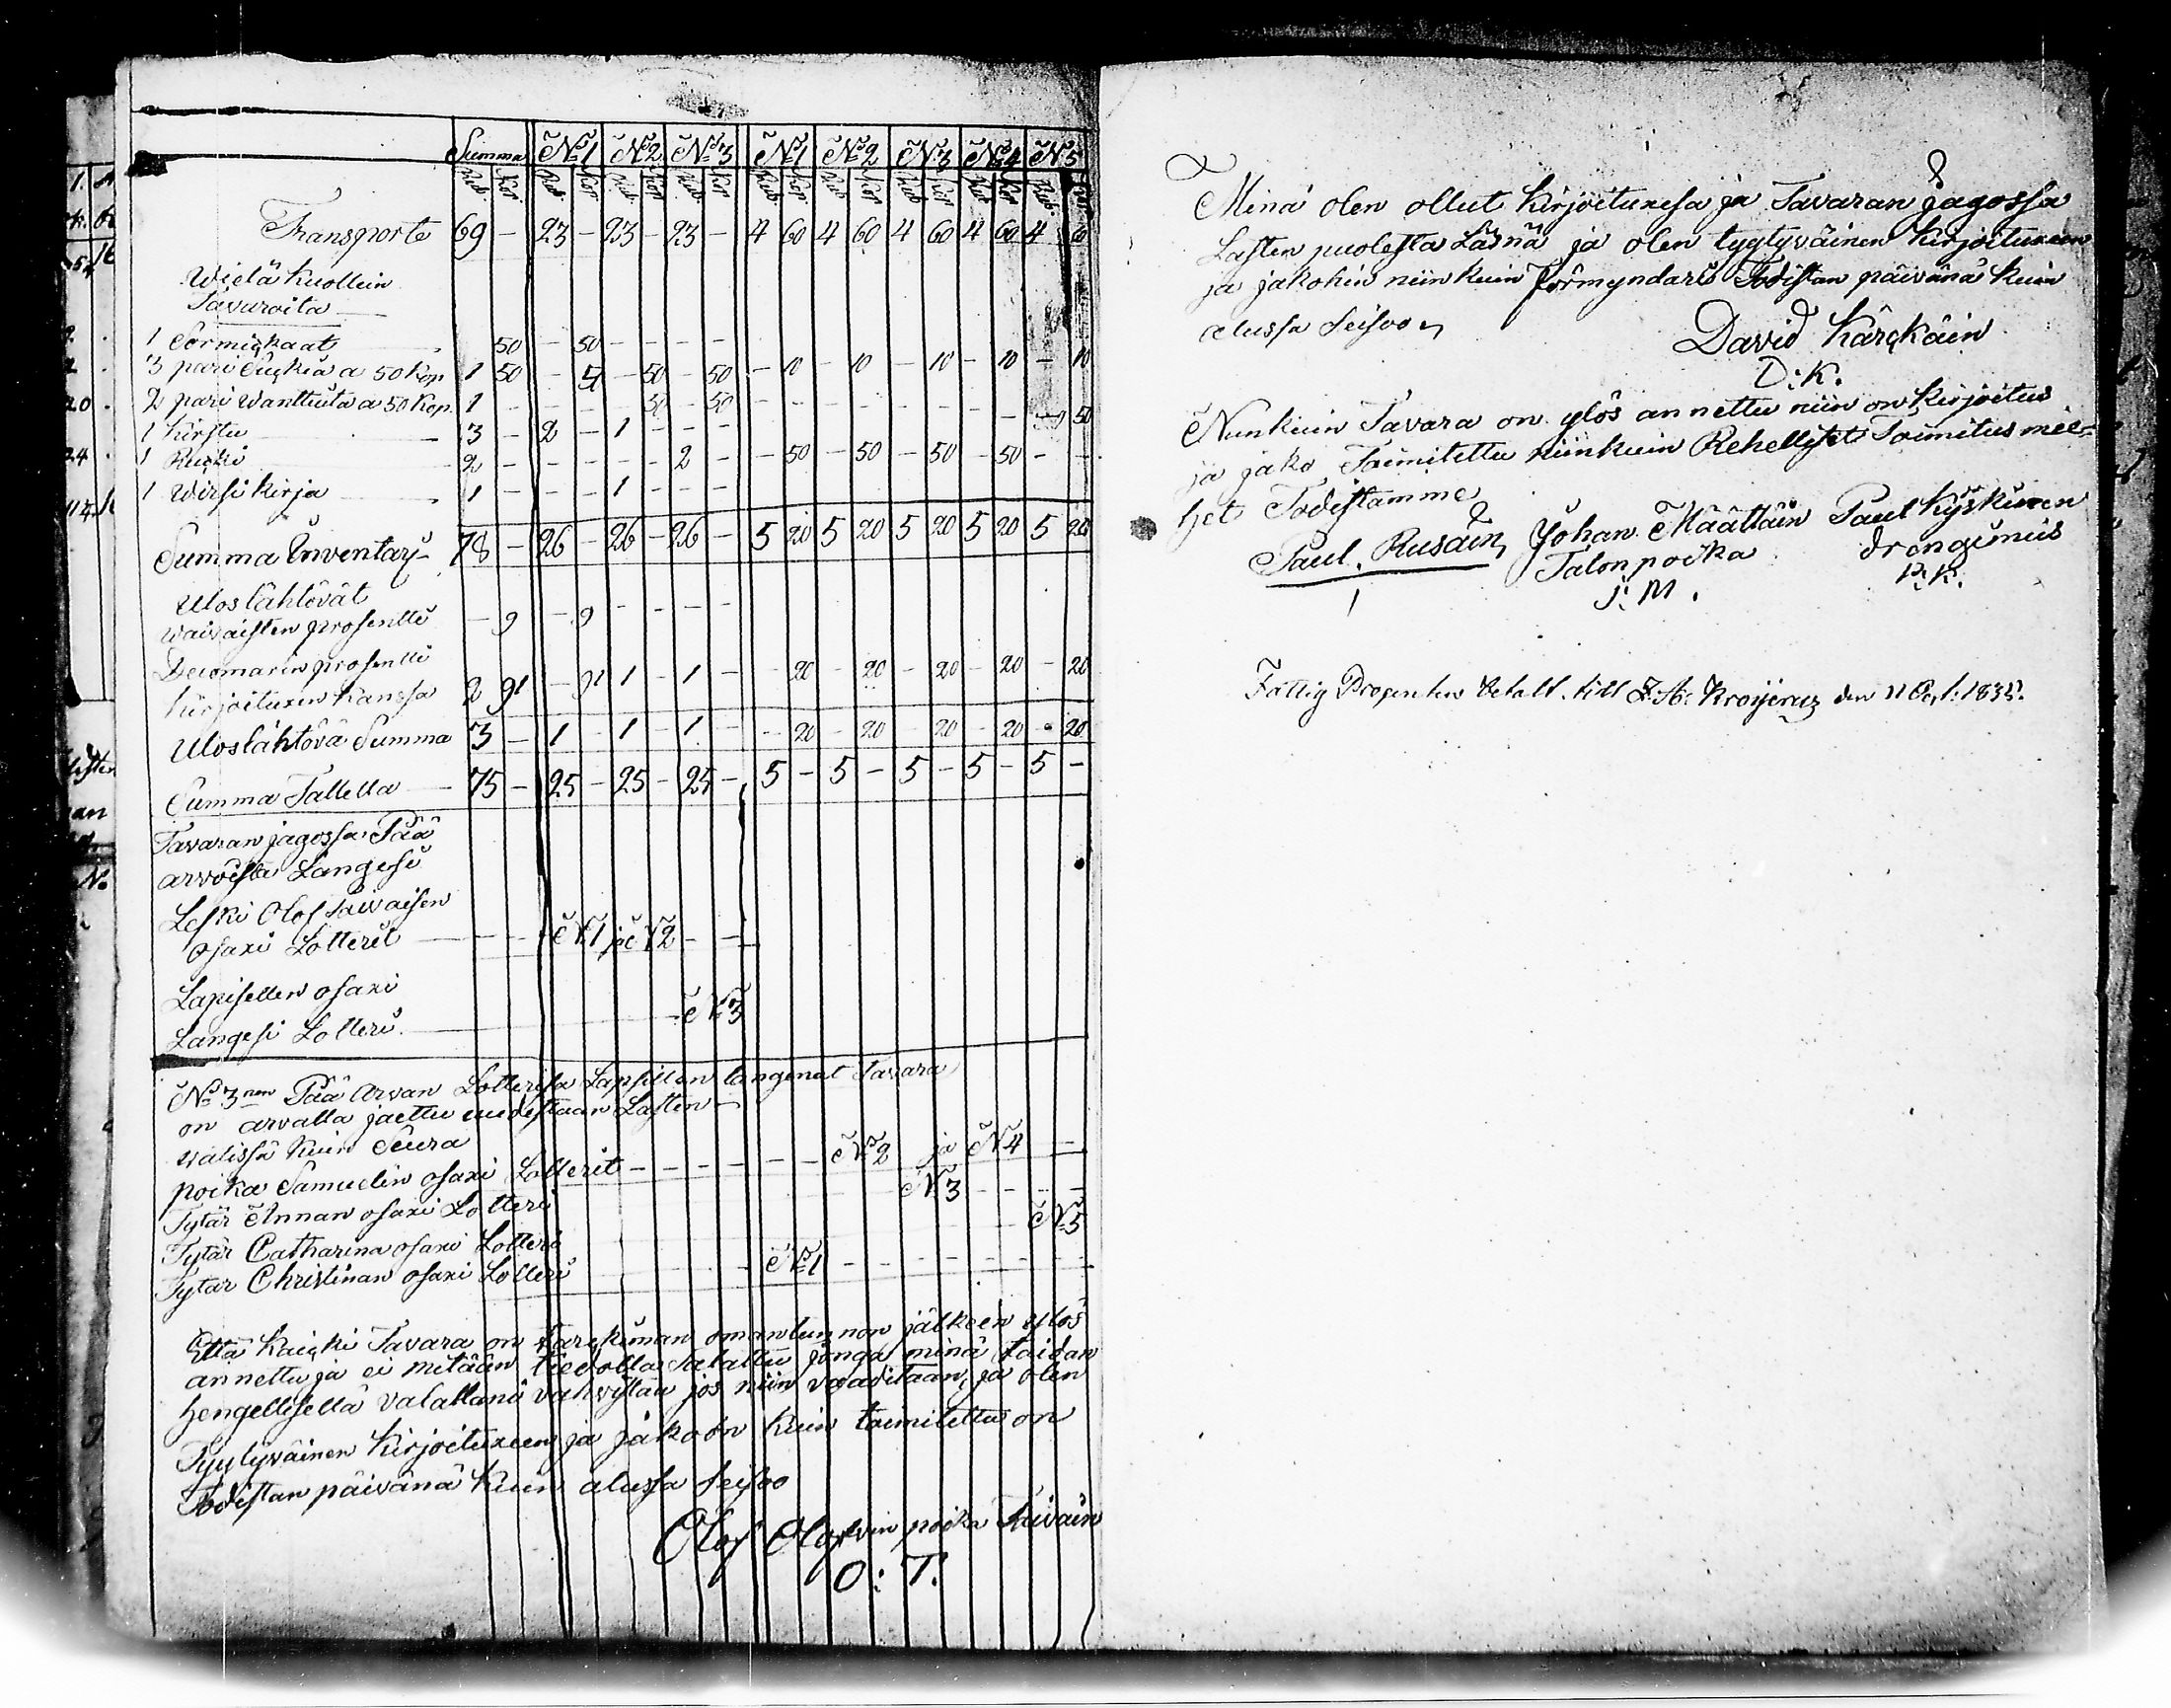 Summa No1 No2 No3 No1 No2 No3 No4 No5
Rub. Kop Rub. Kop Rub. Kop Rub. Kop Rub. Kop Rub. Kop Rub. Kop Rub. Kop Rub.
Transporte 69 - 23 - 23 - 23 - 4 60 4 60 4 60 4 60 4 60
Wielä Kuollein
Tavaroita
1 Sormickaat 50 - 50 - - - -
3 pari Suckia a 50 Kop 1 50 - 50 - 50 - 10 - 10 - 10 - 10 - 10
2 pari Wanttuita a 50 Kop. 1 - - - 50 - 50 - - - - - - - - 50
1 Kirstu 3 - 2 - 1 - - -
1 2 - - - - 2 - - 50 - 50 - 50 - 50 - -
1 Wirsi Kirja 1 - - - 1 - - -
Summa Inventary 78 - 26 - 26 - 26 - 5 20 5 20 5 20 5 20 5 20
Uloslähtövät
waivaisten prosentti - 9 - 9 - - - -
prosentti
Kirjoituxen Kanssa 2 91 - 91 1 - 1 - - 20 - 20 - 20 - 20 - 20
Uloslähtövä Summa 3 - 1 - 1 - 1 - - 20 - 20 - 20 - 20 - 20
Summa Tallella 75 - 25 - 25 - 25 - 5 - 5 - 5 - 5 - 5 -
Tavaran jagossa Pää
arvoista Langesi
Leski Olof Taivaisen
osaxi Lotterit No1 ja No2 - -
Lapisellen osaxi
Langesi Lotteri No3
No 3nen Pää Arvan Lotterisa Lapsillen langenut Tavara
on arvalla jaettu uudestaan Lasten
välissä Kuin Seura
poika Samuelin osaxi Lotterit - - - - - - No2 ja No4 -
Tytär Annan osaxi Lotteri No3 - - - -
Tytär Catharina osaxi Lotteri No5
Tytär Christinan osaxi Lotteri No1 - - - - - - -
Että Kaicki Tavara on Tarckiman omantunnon jälkeen ylös
annettu ja ei mitään tiedolla salattu jonga minä taidan
hengellisellä valallani vahvistaa jos niin vaaditaan, ja olen
Tyytyväinen Kirjoituxeen ja jakoon Kuin toimitettu on
Todistan päivänä Kuin alussa seisoo
Olof Olofvin poika Taivain
O: T.
Minä olen ollut Kirjoituxesa ja Tavaran jagossa
Lasten puolesta Läsnä ja olen tygtyväinen Kirjoituxeen
ja jakohin niinkuin Förmyndari Todistan päivänä Kuin
alussa seisoo
David Kärckäin
D: K.
Niinkuin Tavara on ylös annettu niin on Kirjoitus
ja jako Toimitettu niinkuin Rehelliset Toimitus mie-
het Todistamme
Paul. Rusain Johan Määttäin Paul Kyskinen
Talonpoika
J: M. P: K.
Fattig Procenten betalt till den 11 1835.